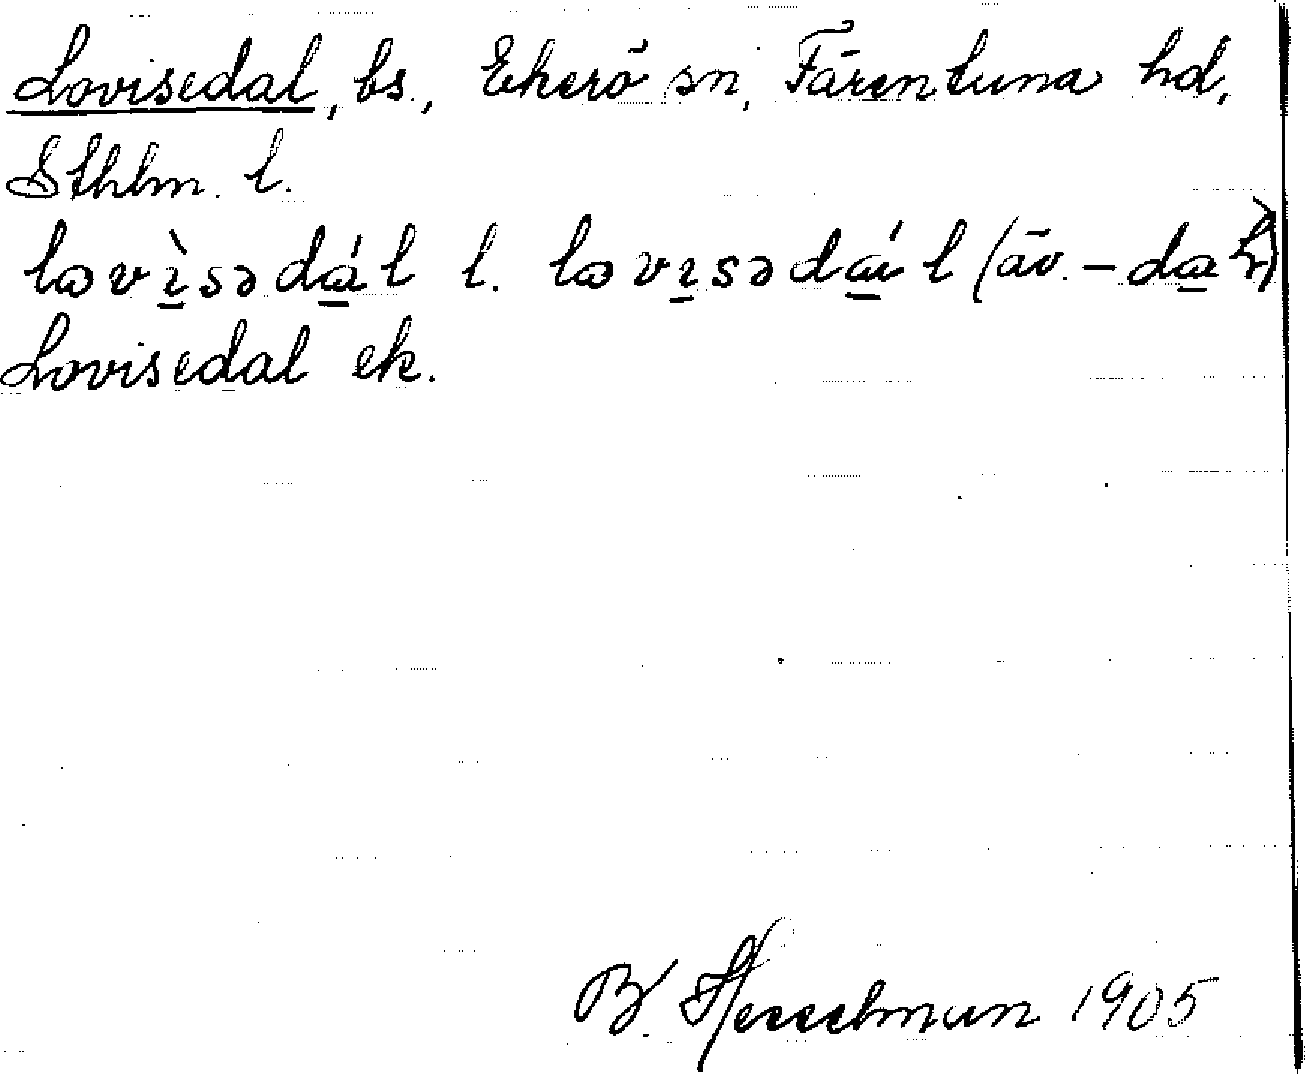 Lovisedal, bs., Ekerö sn, Färentuna hd,
Sthlm. l.
lovìsədál l. lovısədál (äv. – dal)
Lovisedal ek.
B. Hesselman 1905